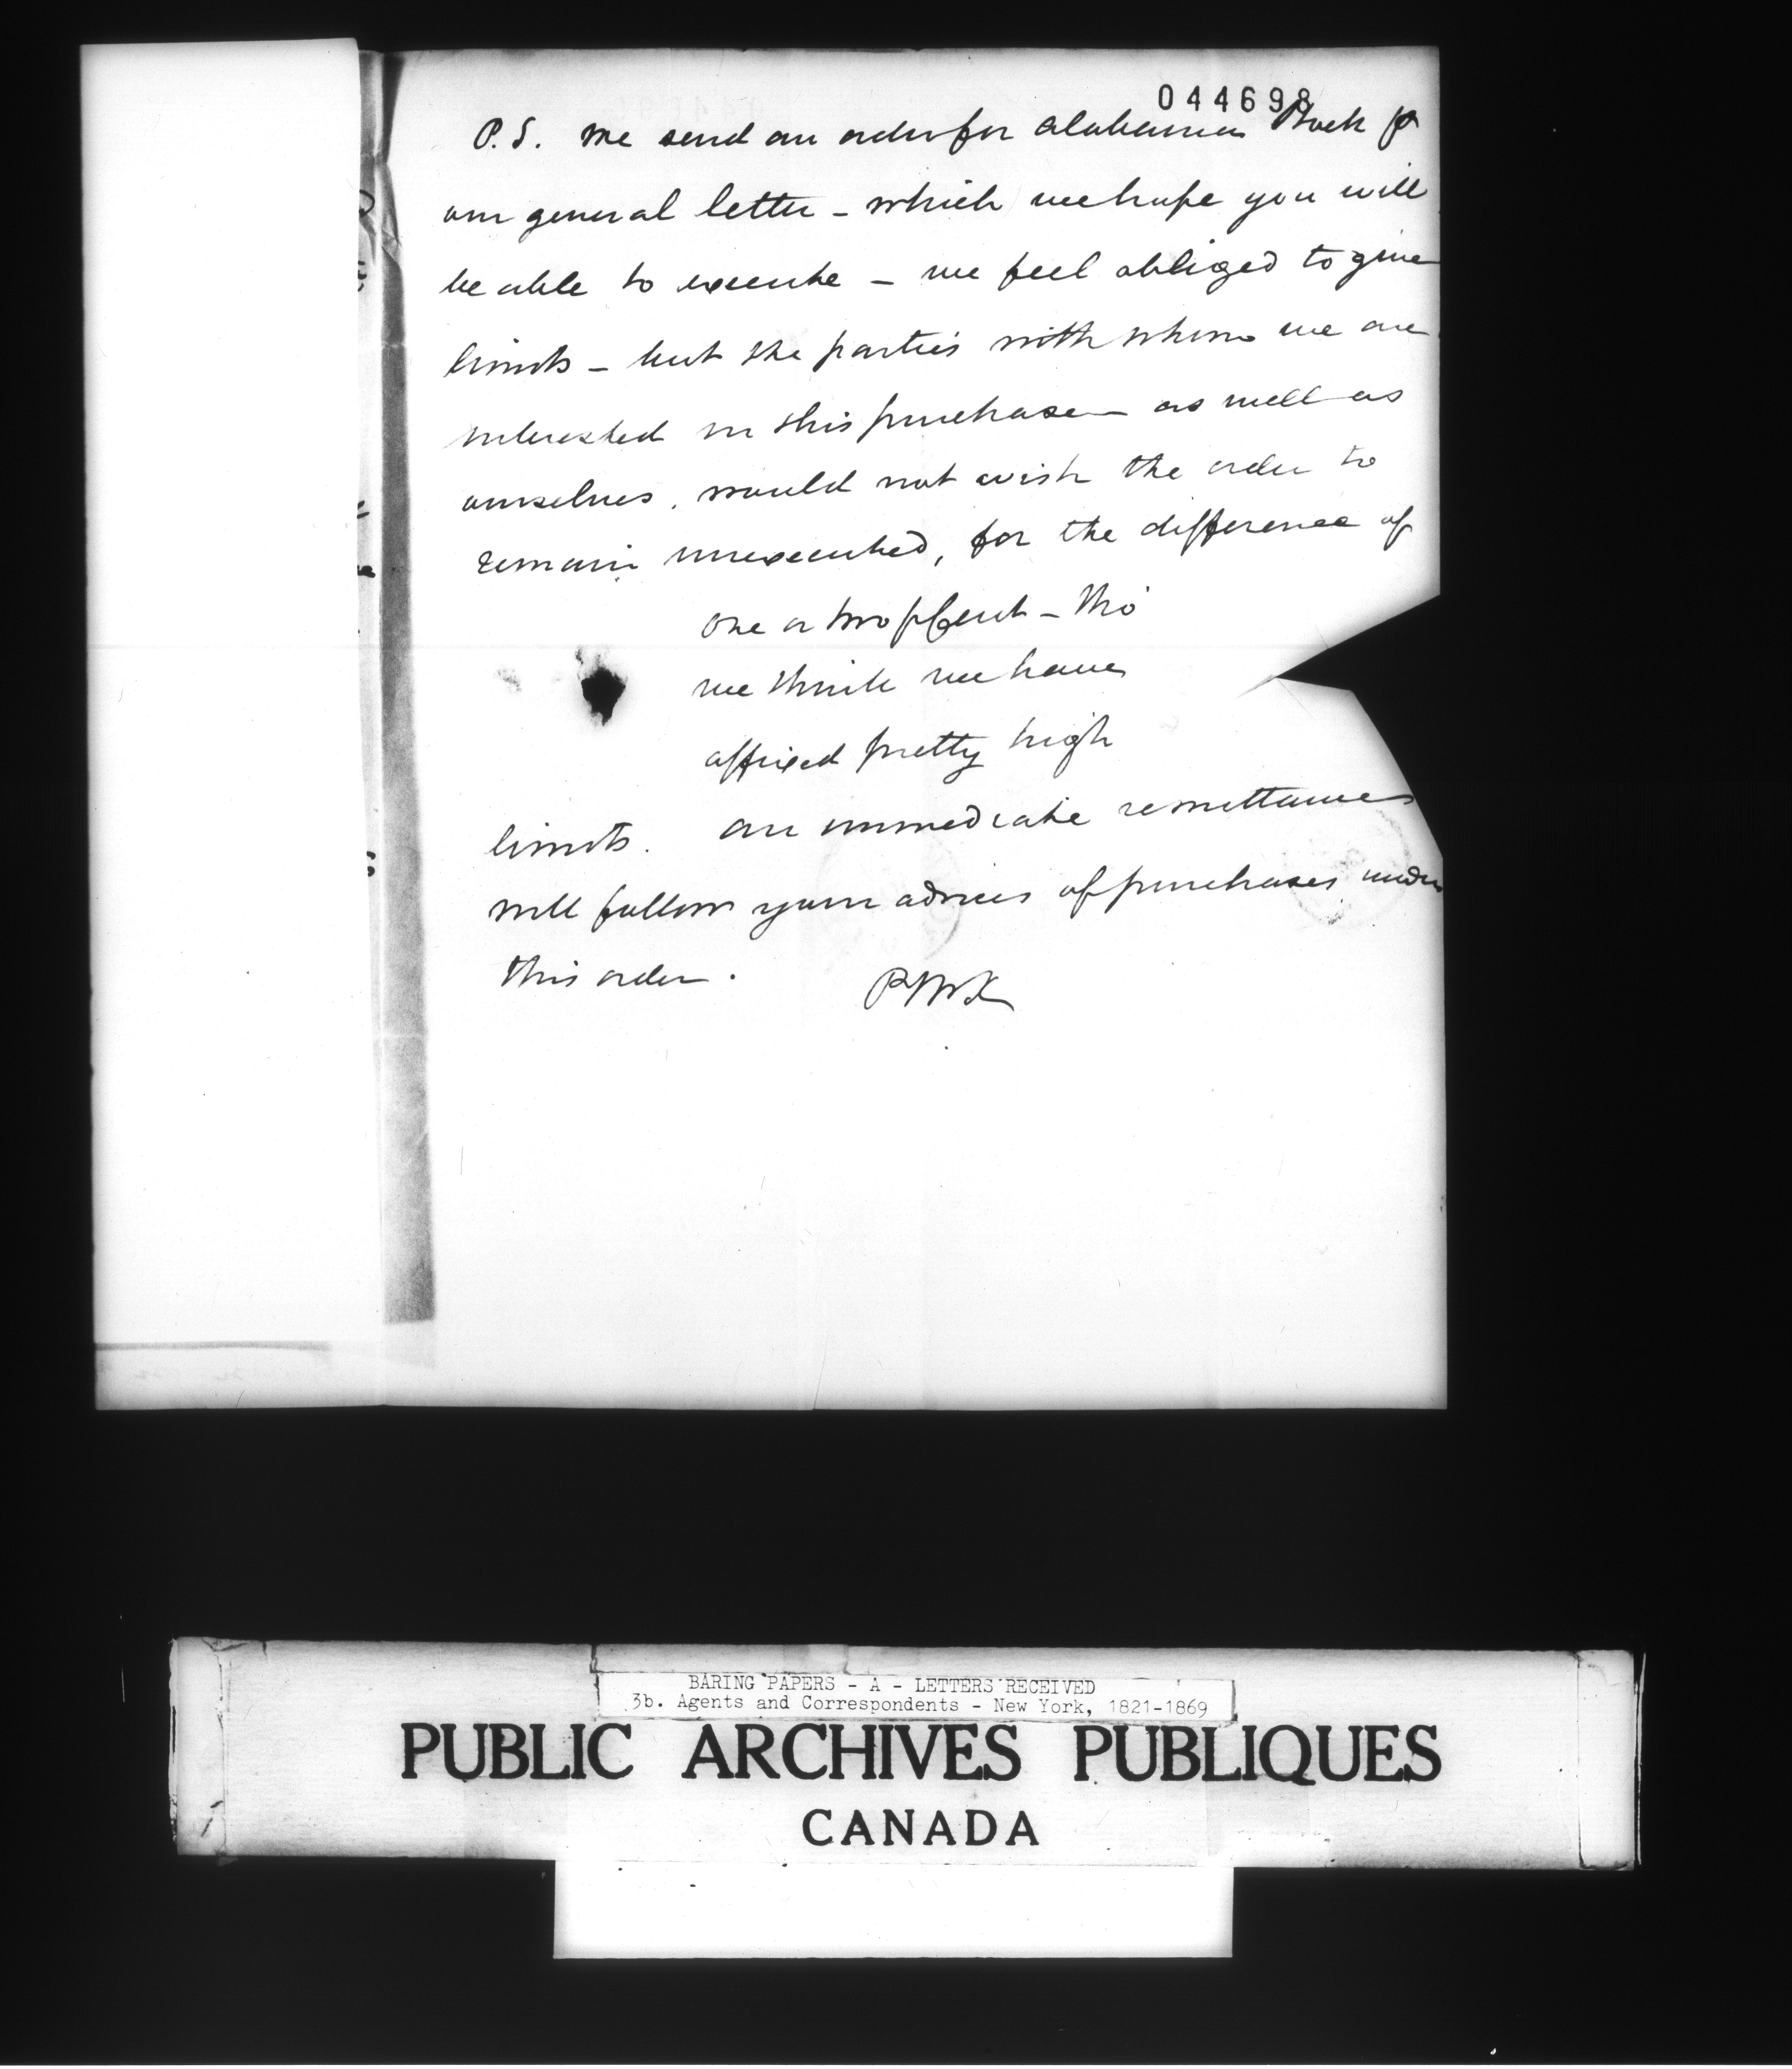 044698
P.S. We send an order for Alabama Stock p
our general letter - which we hope you will
be able to execute - we feel obliged to give
limits - but the parties with whom we are
interested in this purchase - as well as
ourselves, would not wish the order to
remain unexecuted, for the difference of
one or two p Cent - tho'
we think we have
affixed pretty high
limits. An immediate remittance
will follow your advices of purchases under
this order.
BARING PAPERS - A - LETTERS RECEIVED
3b. Agents and Correspondents - New York, 1821-1869
PUBLIC ARCHIVES PUBLIQUES
CANADA